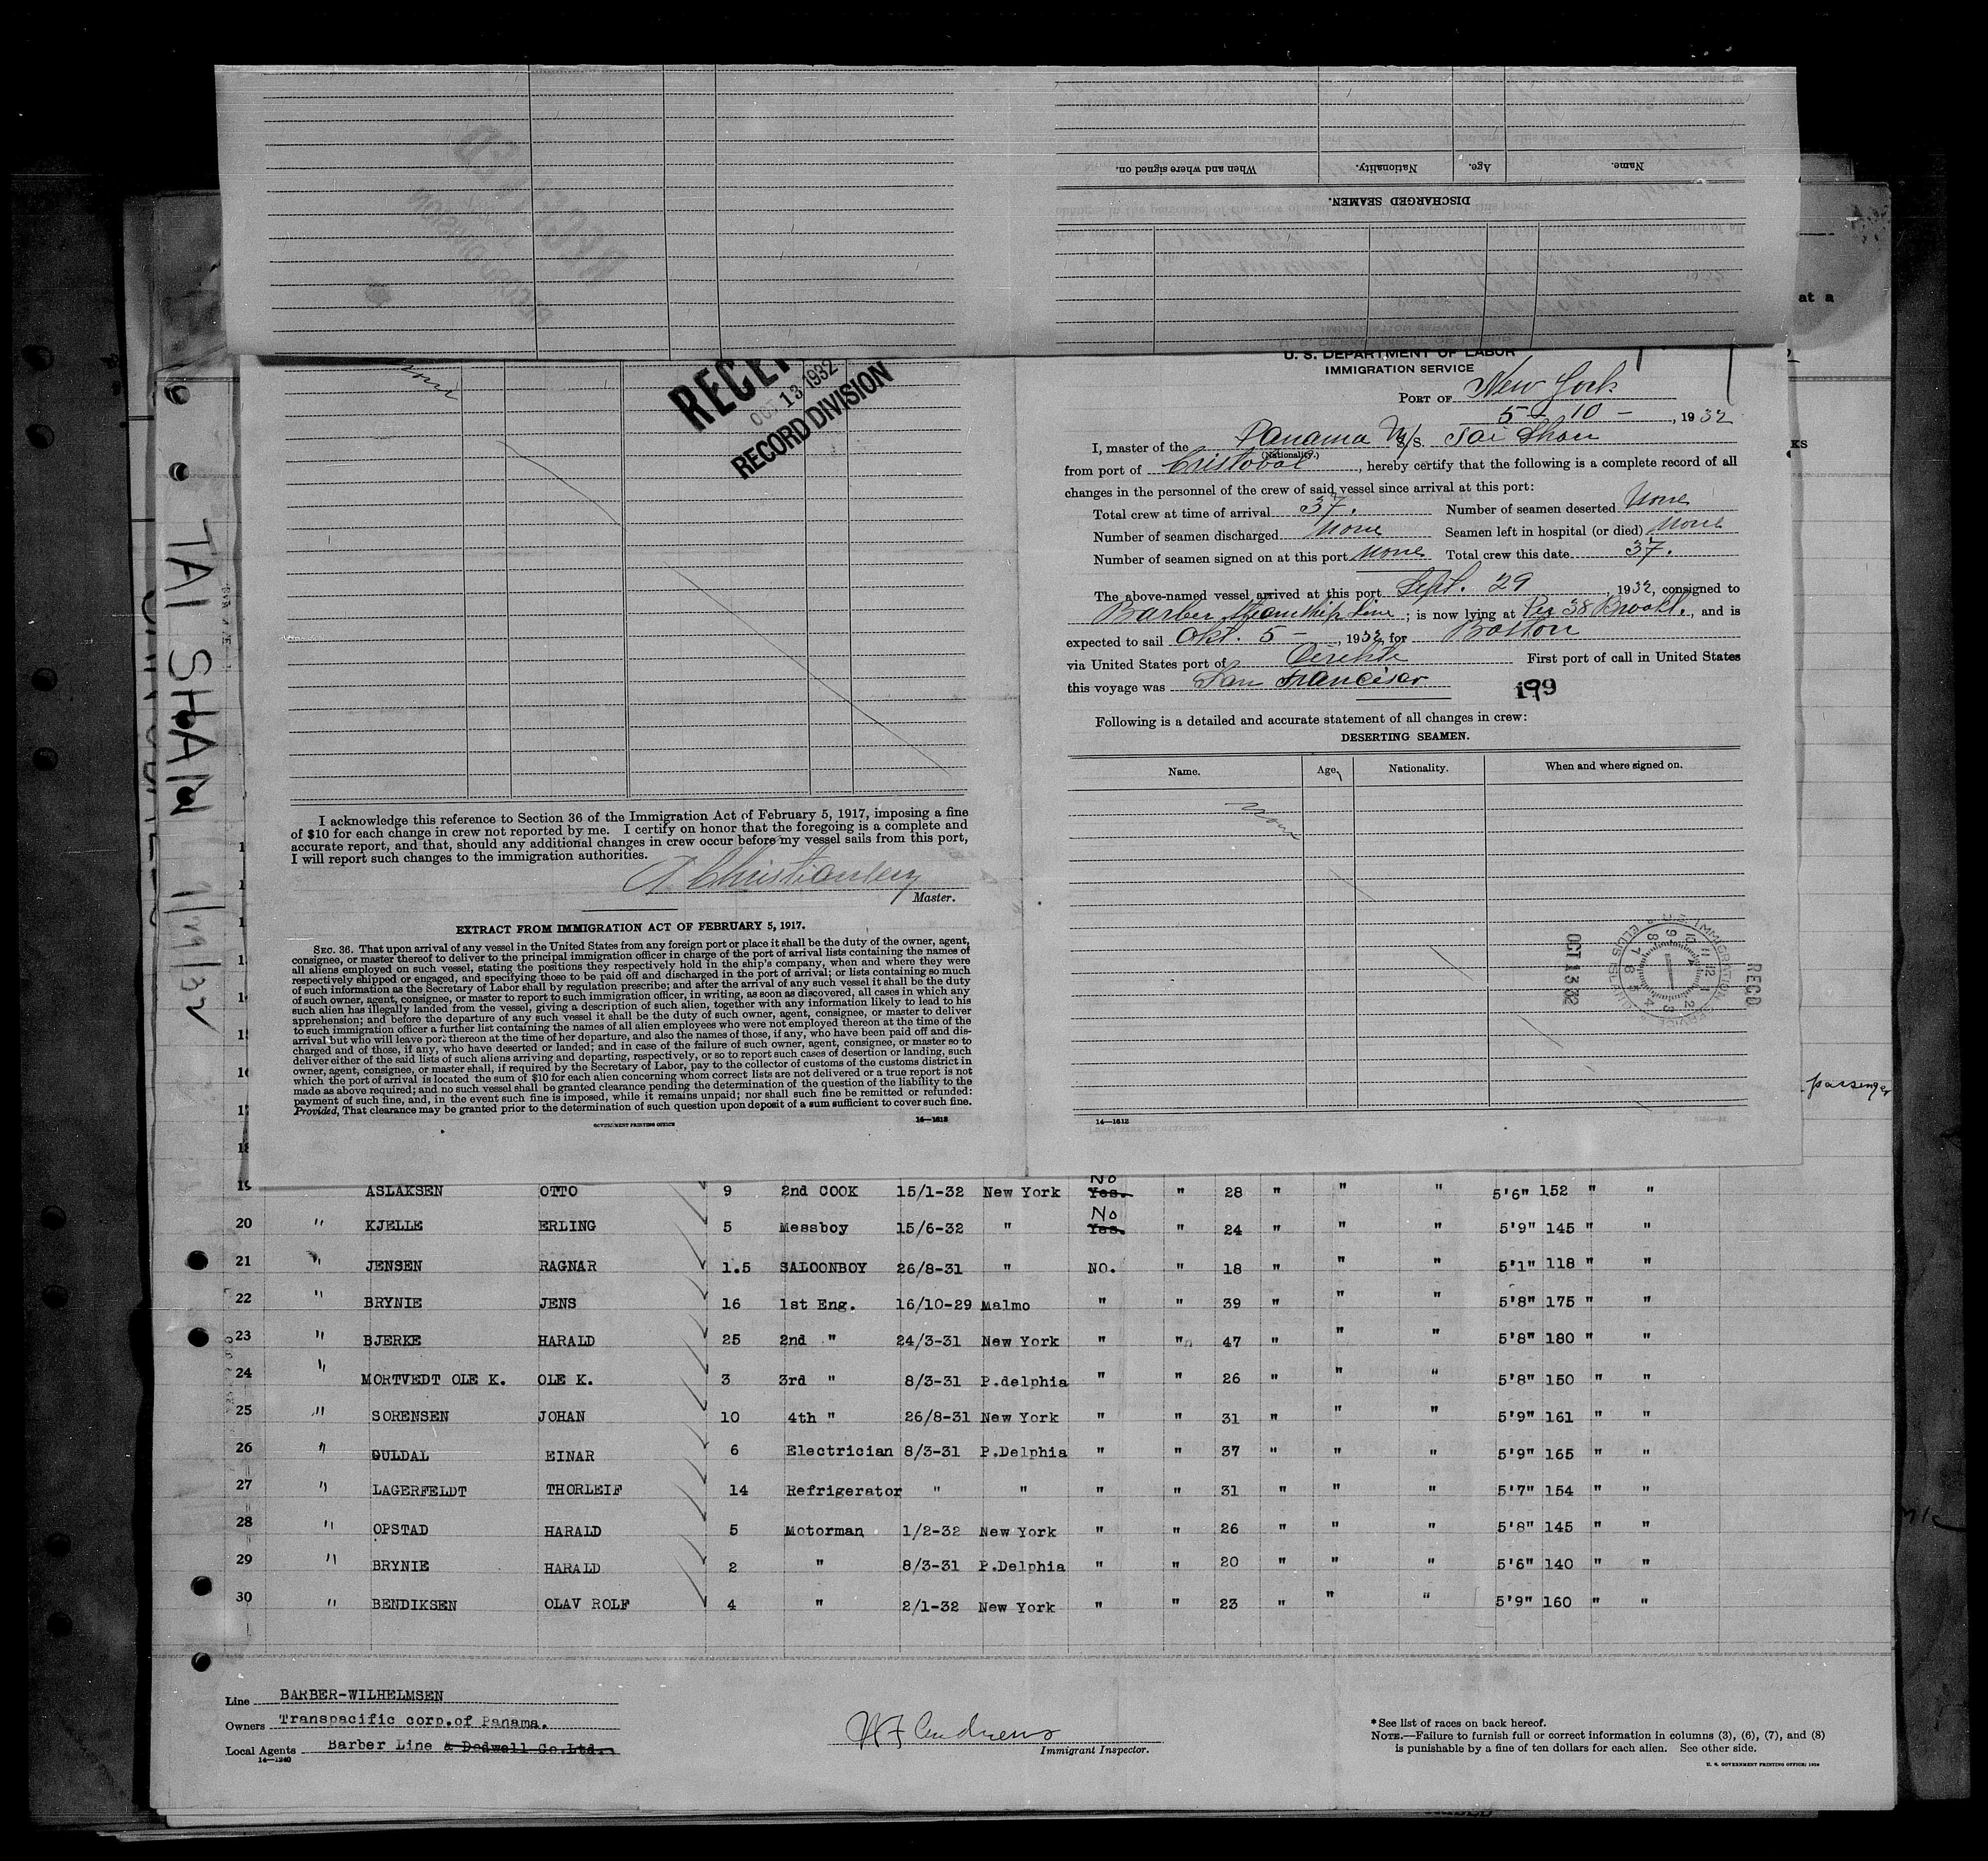 When and where signed on.
Nationality.
Age.
Name.
DISCHARGED SEAMEN.
at a
TAI SHAN 9/29/32
None
OCT 13 1932
RECORD DIVISION
I acknowledge this reference to Section 36 of the Immigration Act of February 5, 1917, imposing a fine
of $10 for each change in crew not reported by me. I certify on honor that the foregoing is a complete and
accurate report, and that, should any additional changes in crew occur before my vessel sails from this port,
I will report such changes to the immigration authorities.
Master.
EXTRACT FROM IMMIGRATION ACT OF FEBRUARY 5, 1917.
SEC. 36. That upon arrival of any vessel in the United States from any foreign port or place it shall be the duty of the owner, agent,
consignee, or master thereof to deliver to the principal immigration officer in charge of the port of arrival lists containing the names of
all aliens employed on such vessel, stating the positions they respectively hold in the ship's company, when and where they were
respectively shipped or engaged, and specifying those to be paid off and discharged in the port of arrival; or lists containing so much
of such information as the Secretary of Labor shall by regulation prescribe; and after the arrival of any such vessel it shall be the duty
of such owner, agent, consignee, or master to report to such immigration officer, in writing, as soon as discovered, all cases in which any
such alien has illegally landed from the vessel, giving a description of such alien, together with any information likely to lead to his
apprehension; and before the departure of any such vessel it shall be the duty of such owner, agent, consignee, or master to deliver
to such immigration officer a further list containing the names of all alien employees who were not employed thereon at the time of the
arrival but who will leave port thereon at the time of her departure, and also the names of those, if any, who have been paid off and dis-
charged and of those, if any, who have deserted or landed; and in case of the failure of such owner, agent, consignee, or master so to
deliver either of the said lists of such aliens arriving and departing, respectively, or so to report such cases of desertion or landing, such
owner, agent, consignee, or master shall, if required by the Secretary of Labor, pay to the collector of customs of the customs district in
which the port of arrival is located the sum of $10 for each alien concerning whom correct lists are not delivered or a true report is not
made as above required; and no such vessel shall be granted clearance pending the determination of the question of the liability to the
payment of such fine, and, in the event such fine is imposed, while it remains unpaid; nor shall such fine be remitted or refunded:
Provided, That clearance may be granted prior to the determination of such question upon deposit of a sum sufficient to cover such fine.
GOVERNMENT PRINTING OFFICE 14—1612
U. S. DEPARTMENT OF LABOR
IMMIGRATION SERVICE
PORT OF New York
5 - 10 - , 1932
I, master of the Panama M/S. Tai Shan
(Nationality.)
from port of Cristobal, hereby certify that the following is a complete record of all
changes in the personnel of the crew of said vessel since arrival at this port:
Total crew at time of arrival 37. Number of seamen deserted None
Number of seamen discharged None Seamen left in hospital (or died) None
Number of seamen signed on at this port None Total crew this date 37.
The above-named vessel arrived at this port Sept. 29, 1932, consigned to
Barber Steamship Line; is now lying at Pier 38 Brookl., and is
expected to sail Okt. 5 -, 1932, for Boston
via United States port of Direkte First port of call in United States
this voyage was San Francisco
199
Following is a detailed and accurate statement of all changes in crew:
DESERTING SEAMEN.
Name. Age. Nationality. When and where signed on.
None
REC'D
OCT 13 32
IMMIGRATION SERVICE
14—1612
passenger
19 ASLAKSEN OTTO 9 2nd COOK 15/1-32 New York No Yes. " 28 " " " 5'6" 152 " "
20 " KJELLE ERLING 5 Messboy 15/6-32 " No Yes. " 24 " " " 5'9" 145 " "
21 " JENSEN RAGNAR 1.5 SALOONBOY 26/8-31 " NO. " 18 " " " 5'1" 118 " "
22 " BRYNIE JENS 16 1st Eng. 16/10-29 Malmo " " 39 " " " 5'8" 175 " "
23 " BJERKE HARALD 25 2nd " 24/3-31 New York " " 47 " " " 5'8" 180 " "
24 " MORTVEDT OLE K. OLE K. 3 3rd " 8/3-31 P.delphia " " 26 " " " 5'8" 150 " "
25 " SORENSEN JOHAN 10 4th " 26/8-31 New York " " 31 " " " 5'9" 161 " "
26 " GULDAL EINAR 6 Electrician 8/3-31 P.Delphia " " 37 " " " 5'9" 165 " "
27 " LAGERFELDT THORLEIF 14 Refrigerator " " " " 31 " " " 5'7" 154 " "
28 " OPSTAD HARALD 5 Motorman 1/2-32 New York " " 26 " " " 5'8" 145 " "
29 " BRYNIE HARALD 2 " 8/3-31 P.Delphia " " 20 " " " 5'6" 140 " "
30 " BENDIKSEN OLAV ROLF 4 " 2/1-32 New York " " 23 " " " 5'9" 160 " "
Line BARBER-WILHELMSEN
Owners Transpacific corp.of Panama.
Local Agents Barber Line & Dodwell Co.Ltd.
14—1240
Immigrant Inspector.
* See list of races on back hereof.
NOTE.—Failure to furnish full or correct information in columns (3), (6), (7), and (8)
is punishable by a fine of ten dollars for each alien. See other side.